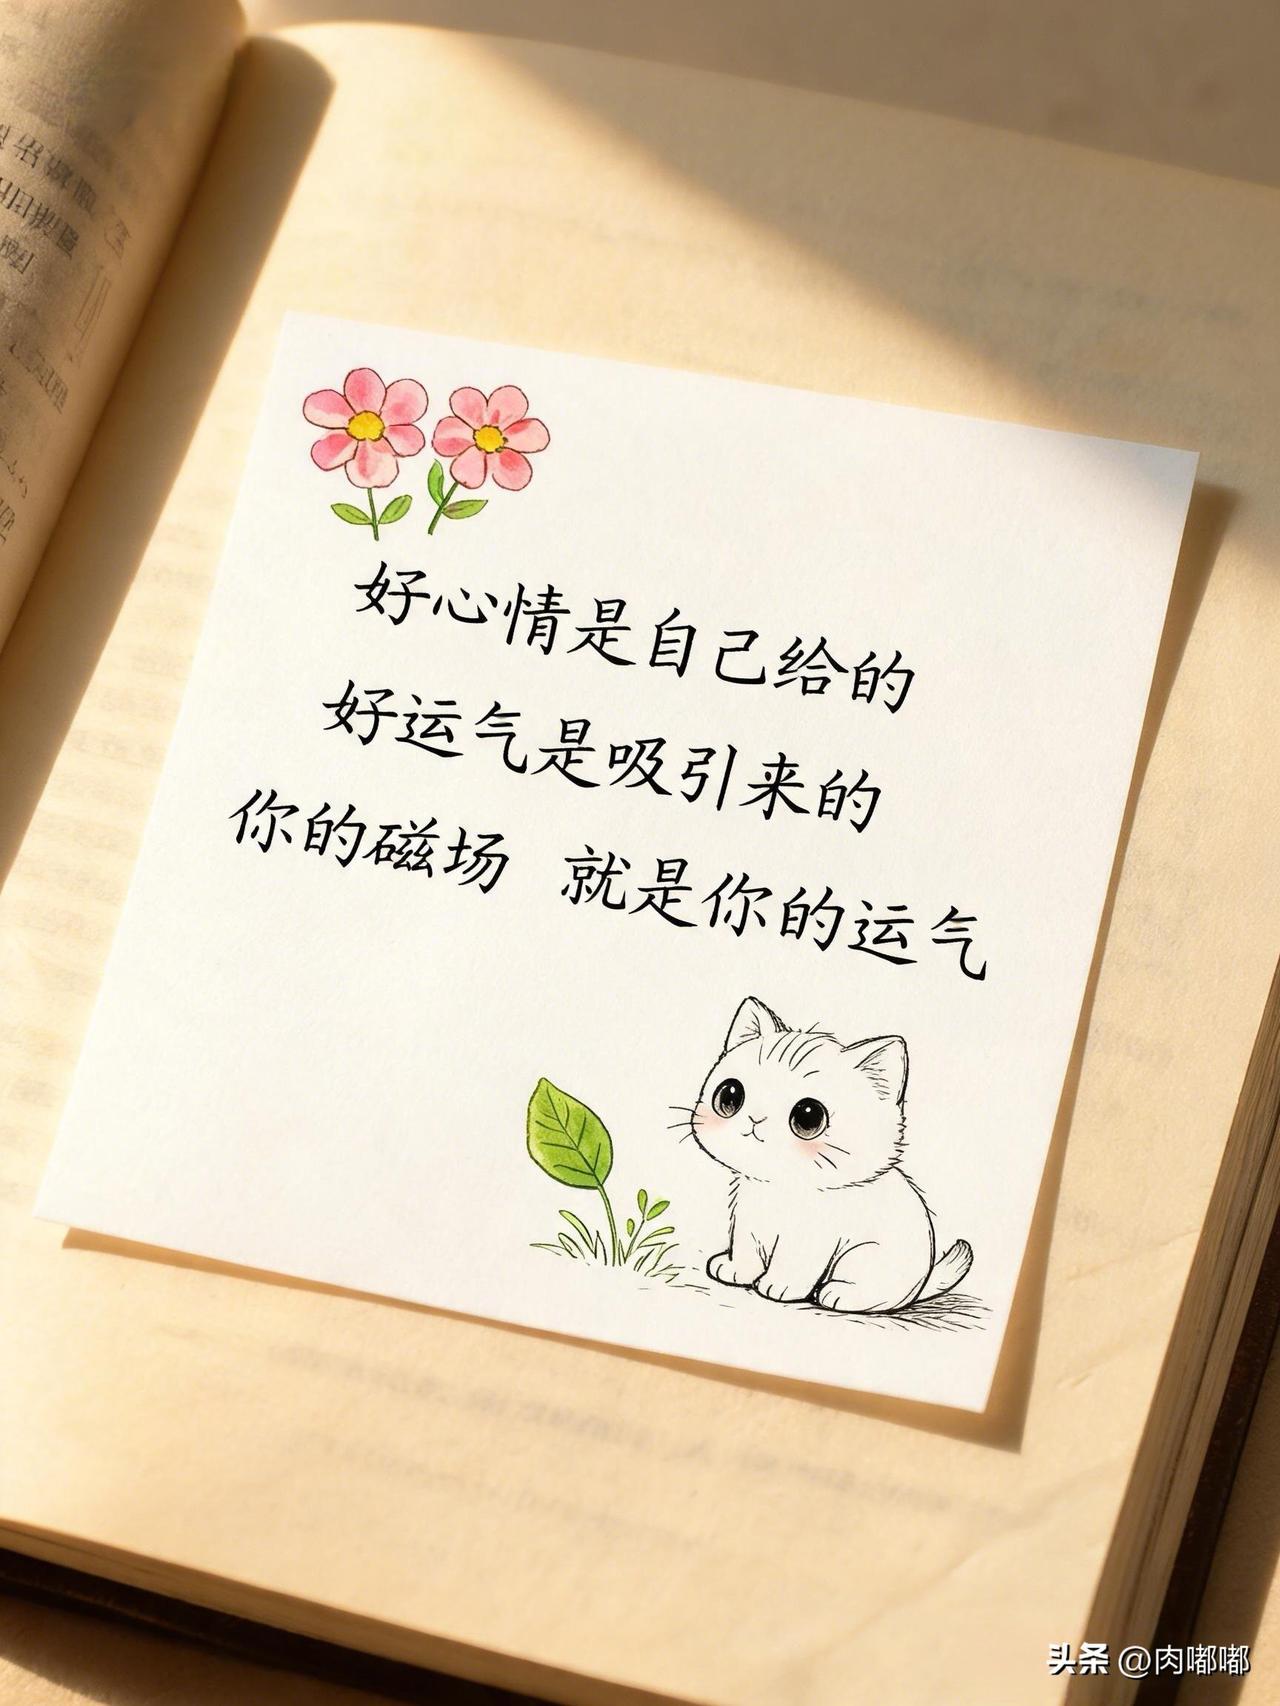 好心情是自己给的
好运气是吸引来的
你的磁场 就是你的运气
头条 @肉嘟嘟